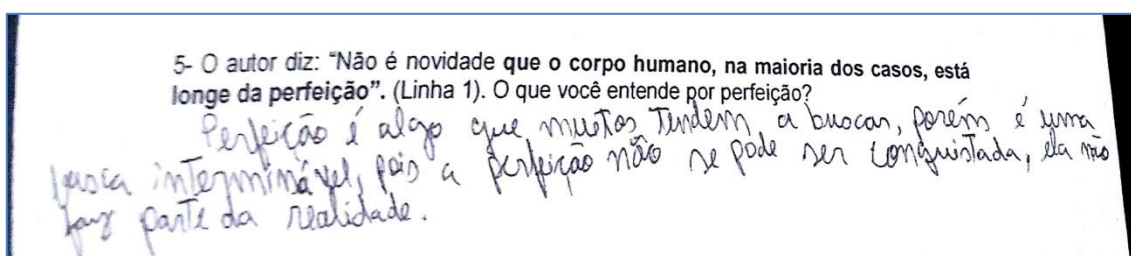 5- O autor diz: "Não é novidade que o corpo humano, na maioria dos casos, está
longe da perfeição". (Linha 1). O que você entende por perfeição?
Perfeição é algo que muitos tendem a buscar, porém é uma
busca interminável, pois a perfeição não se pode ser conquistada, ela não
faz parte da realidade.